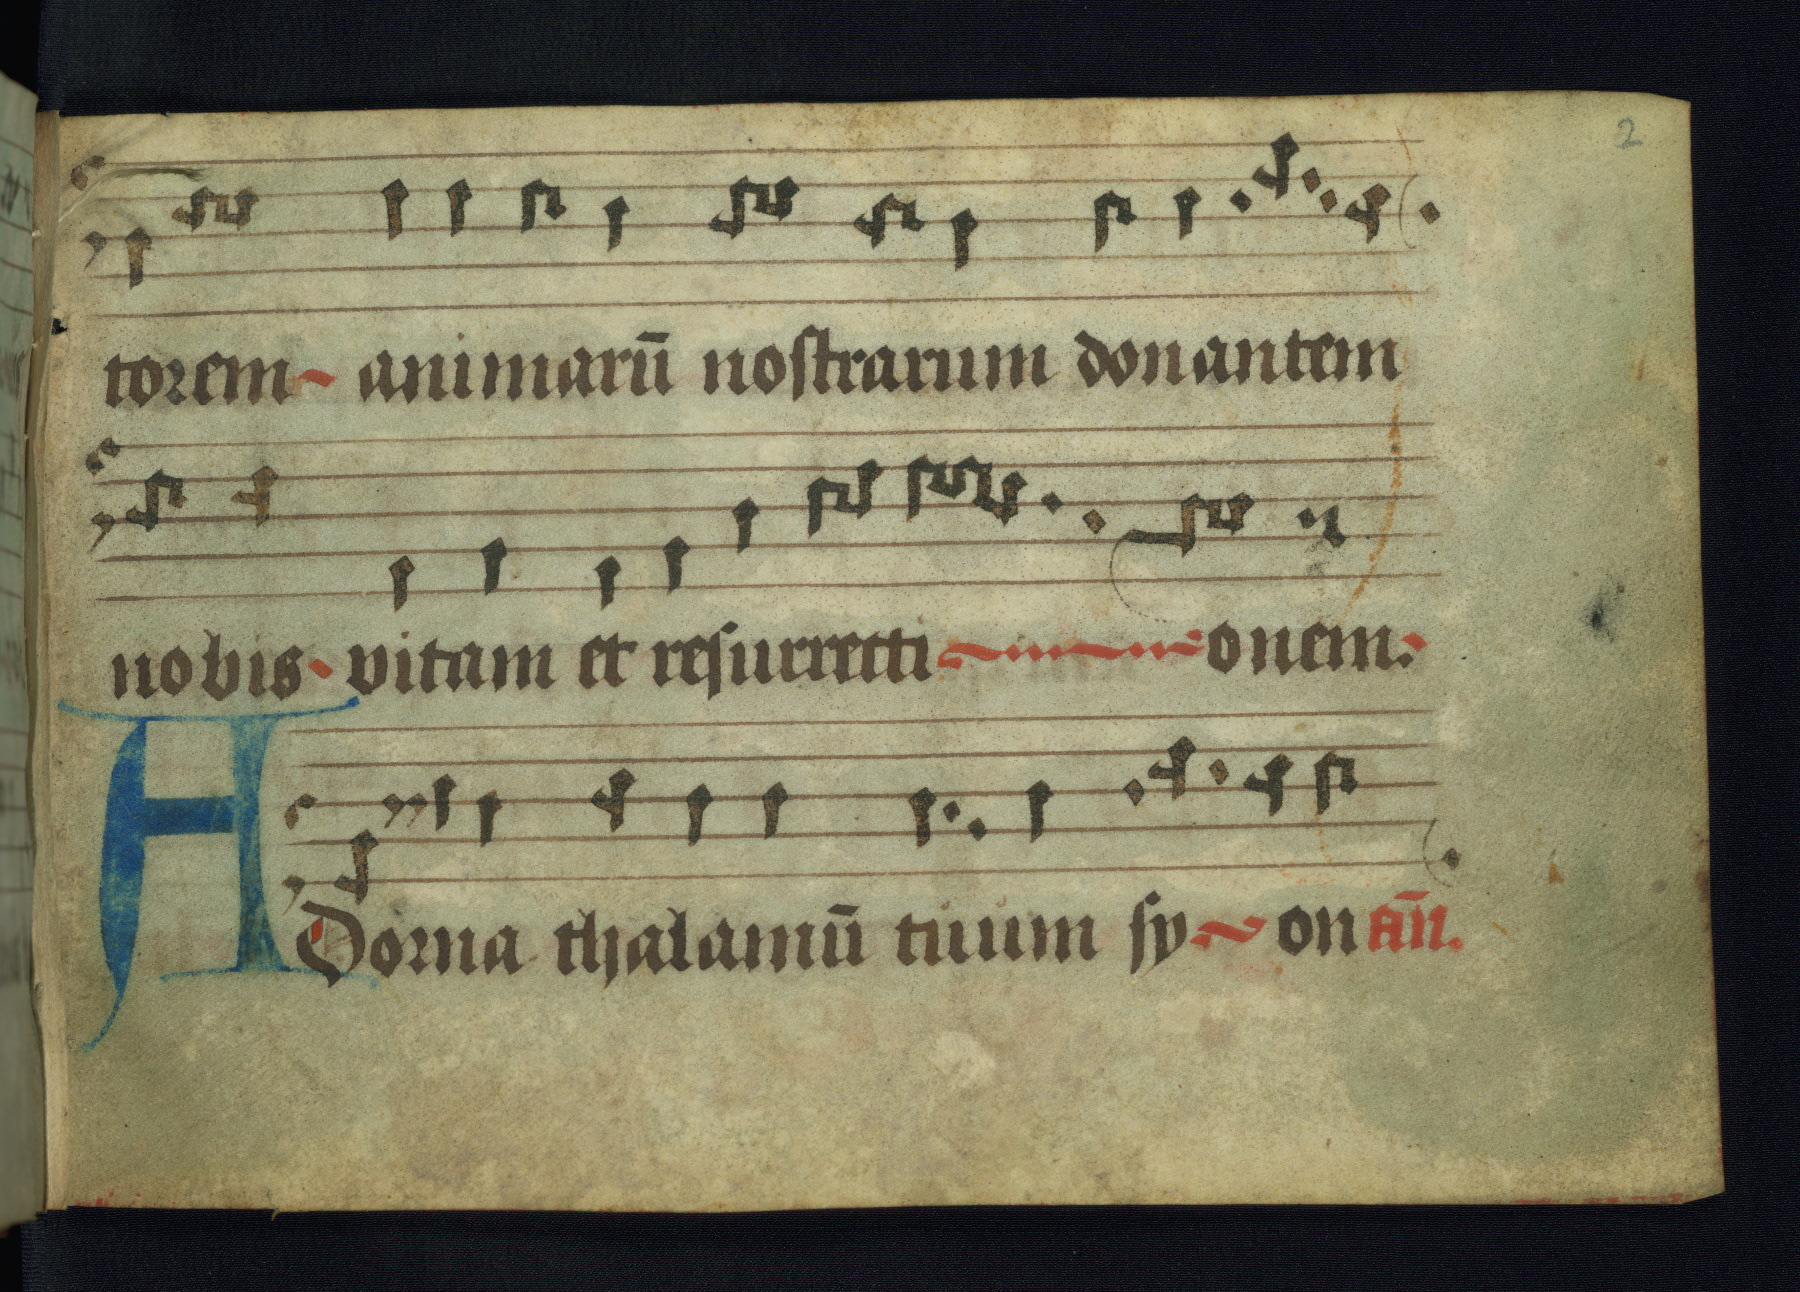 2
torem animarū nostrarum donantem
nobis vitam et resurrecti onem.
Adorna thalamū tuum sy on añ.